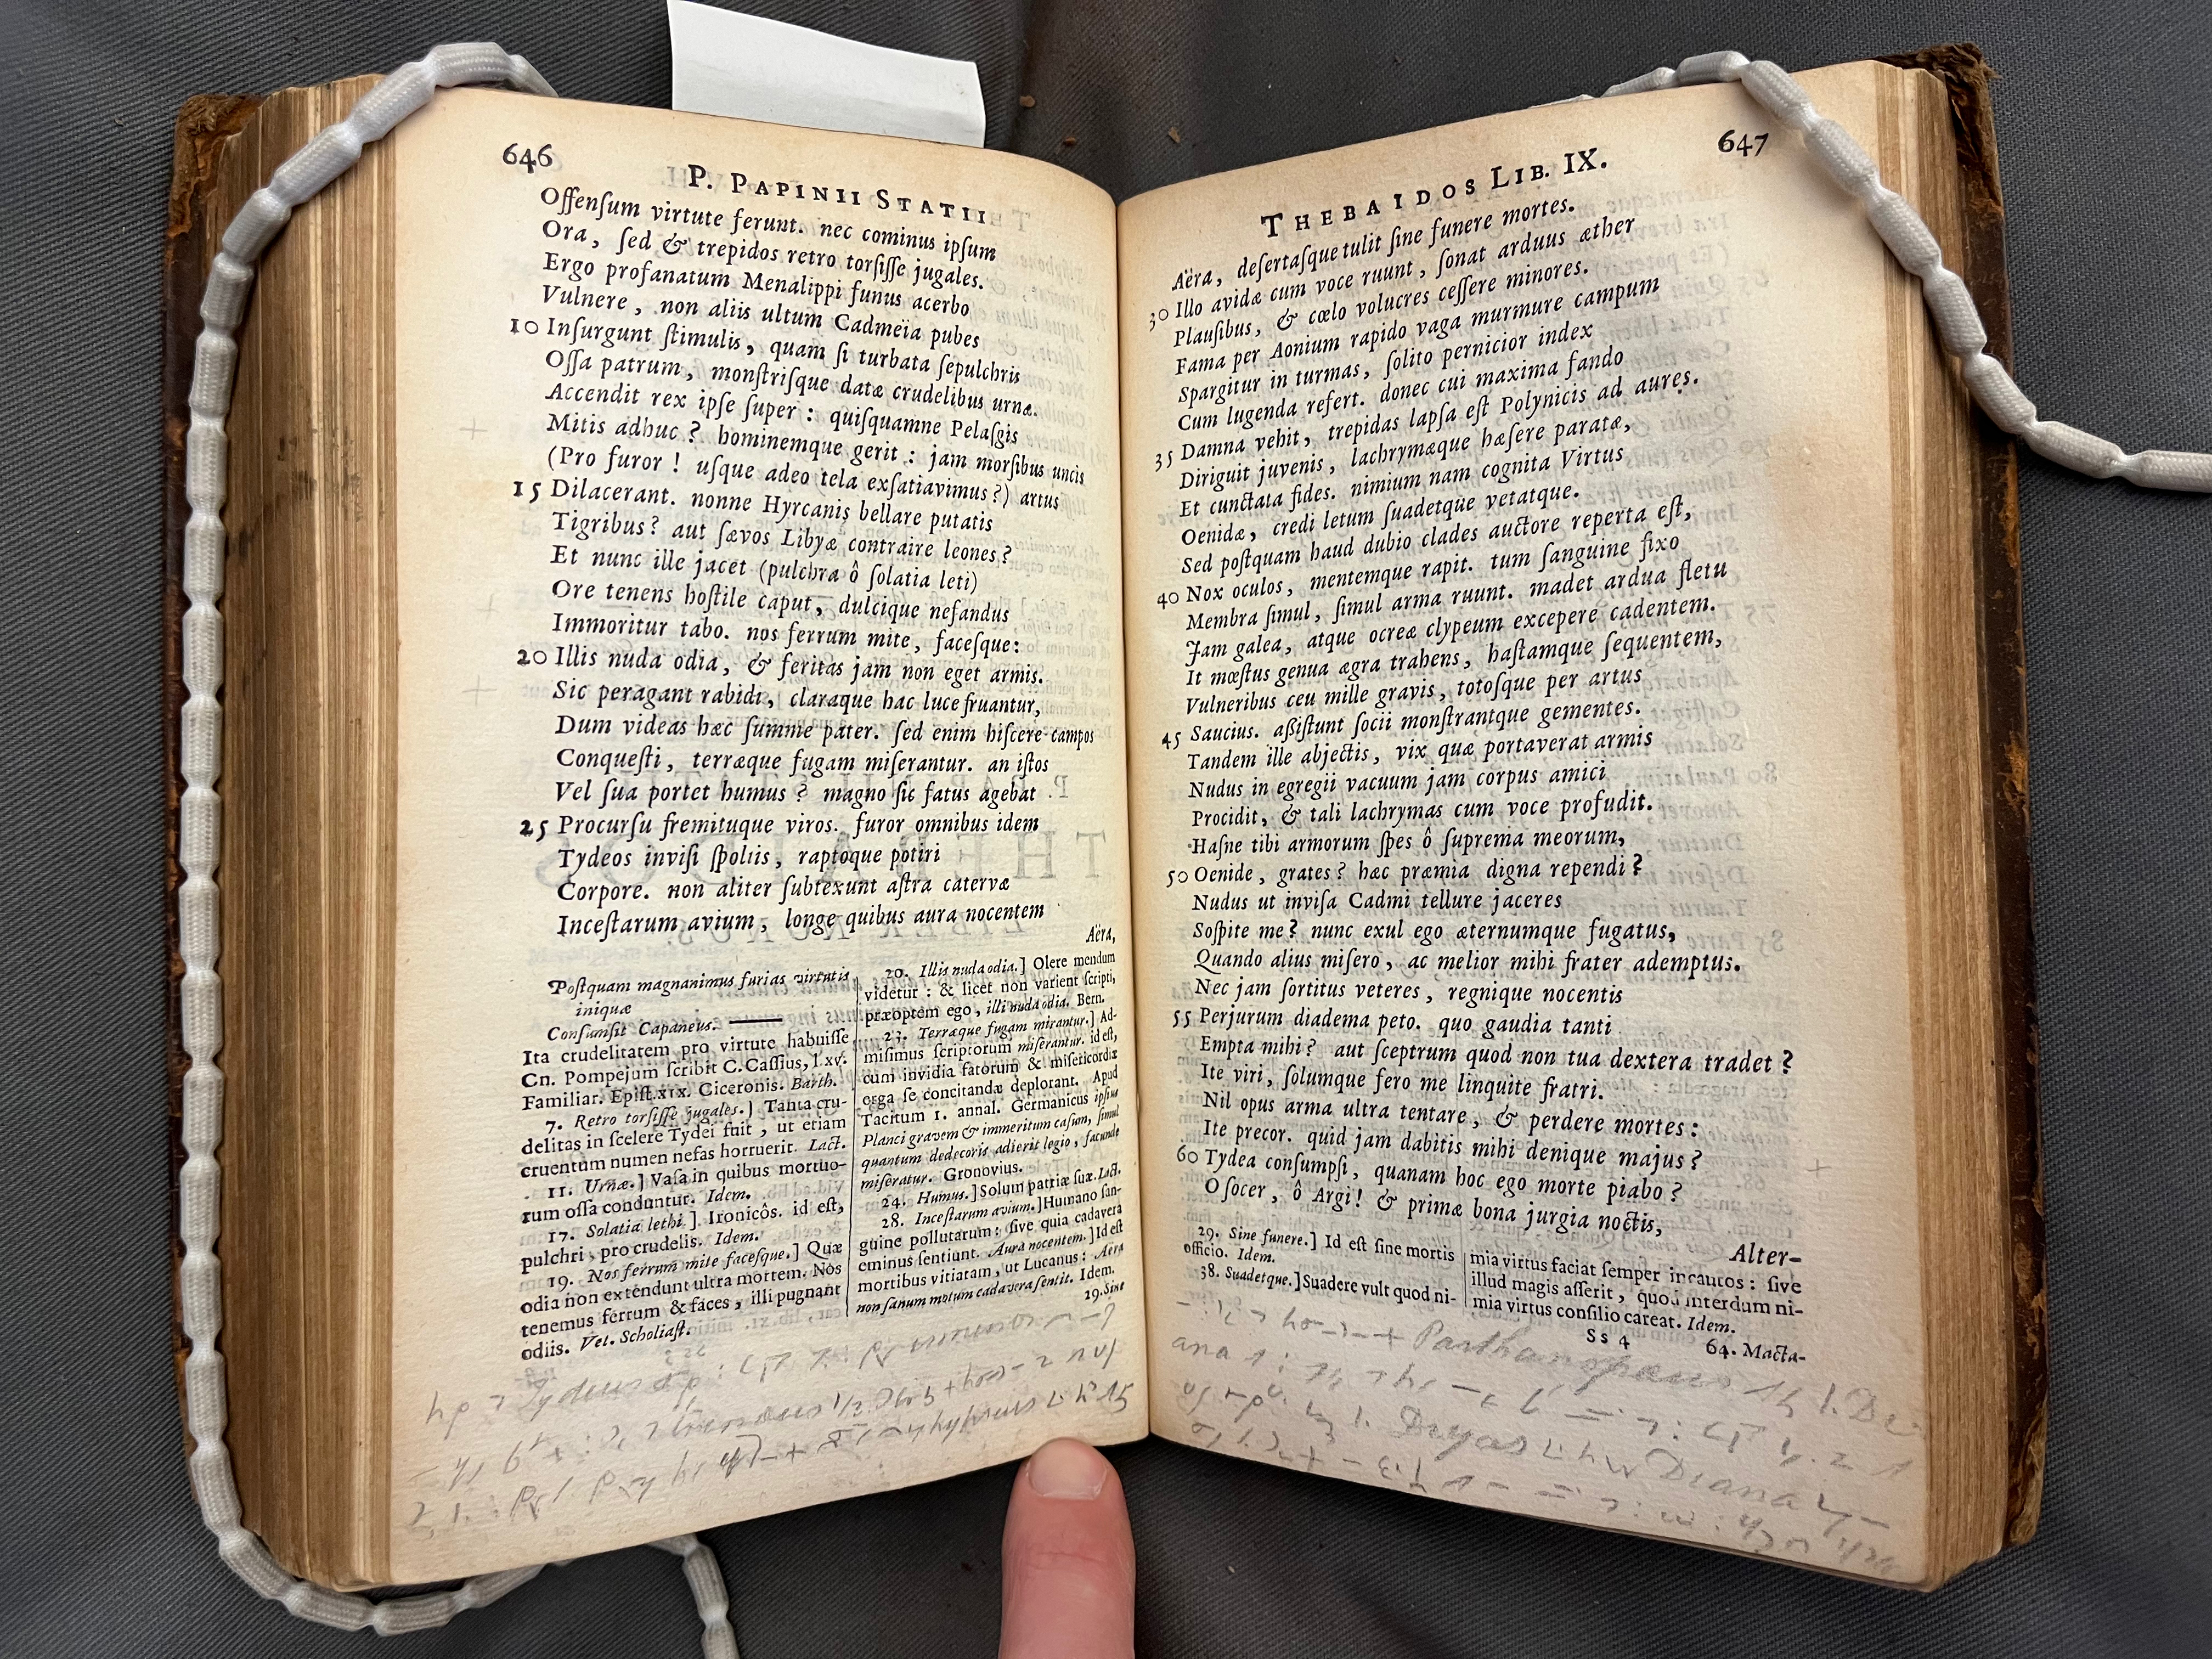 646
P. PAPINII STATII
Offenſum virtute ferunt. nec cominus ipſum
Ora, ſed & trepidos retro torſiſſe jugales.
Ergo profanatum Menalippi funus acerbo
Vulnere, non aliis ultum Cadmeïa pubes
10 Inſurgunt ſtimulis, quam ſi turbata ſepulchris
Oſſa patrum, monſtriſque datæ crudelibus urnæ.
Accendit rex ipſe ſuper: quiſquamne Pelaſgis
Mitis adhuc? hominemque gerit: jam morſibus uncis
(Pro furor! uſque adeo tela exſatiavimus?) artus
15 Dilacerant. nonne Hyrcanis bellare putatis
Tigribus? aut ſævos Libyæ contraire leones?
Et nunc ille jacet (pulchra ô ſolatia leti)
Ore tenens hoſtile caput, dulcique nefandus
Immoritur tabo. nos ferrum mite, faceſque:
20 Illis nuda odia, & feritas jam non eget armis.
Sic peragant rabidi, claraque hac luce fruantur,
Dum videas hæc ſumme pater. ſed enim hiſcere campos
Conqueſti, terræque fugam miſerantur. an iſtos
Vel ſua portet humus? magno ſic fatus agebat
25 Procurſu fremituque viros. furor omnibus idem
Tydeos inviſi ſpoliis, raptoque potiri
Corpore. non aliter ſubtexunt aſtra catervæ
Inceſtarum avium, longe quibus aura nocentem
Aëra,
Poſtquam magnanimus furias virtutis
iniquæ
Conſumſit Capaneus.
Ita crudelitatem pro virtute habuiſſe
Cn. Pompejum ſcribit C. Caſſius, l. xv.
Familiar. Epiſt. xix. Ciceronis. Barth.
7. Retro torſiſſe jugales.] Tanta cru-
delitas in ſcelere Tydei fuit, ut etiam
cruentum numen nefas horruerit. Lact.
11. Urnæ.] Vaſa in quibus mortuo-
rum oſſa conduntur. Idem.
17. Solatia lethi.] Ironicôs. id eſt,
pulchri, pro crudelis. Idem.
19. Nos ferrum mite faceſque.] Quæ
odia non extendunt ultra mortem. Nos
tenemus ferrum & faces, illi pugnant
odiis. Vet. Scholiaſt.
20. Illis nuda odia.] Olere mendum
videtur: & licet non varient ſcripti,
præoptem ego, illi nuda odia. Bern.
23. Terræque fugam mirantur.] Ad-
miſimus ſcriptorum miſerantur. id eſt,
cum invidia fatorum & miſericordiæ
erga ſe concitandæ deplorant. Apud
Tacitum 1. annal. Germanicus ipſius
Planci gravem & immeritum caſum, ſimul
quantum dedecoris adierit legio, facunde
miſeratur. Gronovius.
24. Humus.] Solum patriæ ſuæ. Lact.
28. Inceſtarum avium.] Humano ſan-
guine pollutarum: ſive quia cadavera
eminus ſentiunt. Aura nocentem.] Id eſt
mortibus vitiatam, ut Lucanus: Aera
non ſanum motum cadavera ſentit. Idem.
29. Sine
647
THEBAIDOS LIB. IX.
Aëra, deſertaſque tulit ſine funere mortes.
30 Illo avidæ cum voce ruunt, ſonat arduus æther
Plauſibus, & cœlo volucres ceſſere minores.
Fama per Aonium rapido vaga murmure campum
Spargitur in turmas, ſolito pernicior index
Cum lugenda refert. donec cui maxima fando
35 Damna vehit, trepidas lapſa eſt Polynicis ad aures.
Diriguit juvenis, lachrymæque hæſere paratæ,
Et cunctata fides. nimium nam cognita Virtus
Oenidæ, credi letum ſuadetque vetatque.
Sed poſtquam haud dubio clades auctore reperta eſt,
40 Nox oculos, mentemque rapit. tum ſanguine fixo
Membra ſimul, ſimul arma ruunt. madet ardua fletu
Jam galea, atque ocreæ clypeum excepere cadentem.
It mœſtus genua ægra trahens, haſtamque ſequentem,
Vulneribus ceu mille gravis, totoſque per artus
45 Saucius. aſſiſtunt ſocii monſtrantque gementes.
Tandem ille abjectis, vix quæ portaverat armis
Nudus in egregii vacuum jam corpus amici
Procidit, & tali lachrymas cum voce profudit.
Haſne tibi armorum ſpes ô ſuprema meorum,
50 Oenide, grates? hæc præmia digna rependi?
Nudus ut inviſa Cadmi tellure jaceres
Soſpite me? nunc exul ego æternumque fugatus,
Quando alius miſero, ac melior mihi frater ademptus.
Nec jam ſortitus veteres, regnique nocentis
55 Perjurum diadema peto. quo gaudia tanti
Empta mihi? aut ſceptrum quod non tua dextera tradet?
Ite viri, ſolumque fero me linquite fratri.
Nil opus arma ultra tentare, & perdere mortes:
Ite precor. quid jam dabitis mihi denique majus?
60 Tydea conſumpſi, quanam hoc ego morte piabo?
O ſocer, ô Argi! & primæ bona jurgia noctis,
Alter-
29. Sine funere.] Id eſt ſine mortis
officio. Idem.
38. Suadetque.] Suadere vult quod ni-
mia virtus faciat ſemper incautos: ſive
illud magis aſſerit, quod interdum ni-
mia virtus conſilio careat. Idem.
Ss 4
64. Macta-
Parthanopæus
Dryas
Diana